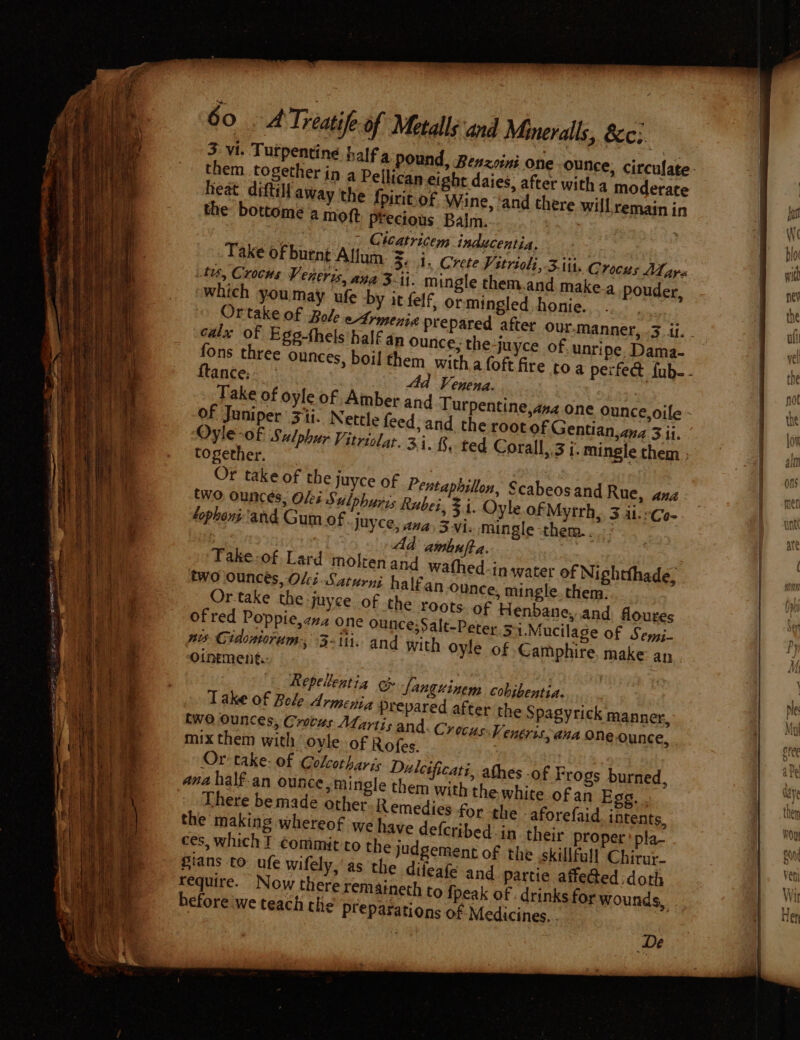 60 A Treatiſe of Metalls and Mineralls, &c.
℥. vi. Turpentine half a pound, Benzoini one ounce, circulate
them together in a Pellican eight daies, after with a moderate
heat diſtill away the ſpirit of Wine, and there will remain in
the bottome a moſt precious Balm.
Cicatricem inducentia.
Take of burnt Allum ℥. i. Crete Vitrioli, ℥. iii. Crocus Mar-
tis, Crocus Veneris, ana ℥. ii. mingle them and make a pouder,
which you may uſe by it ſelf, or mingled honie.
Or take of Bole Armenia prepared after our manner, ℥. ii.
calx of Egg-ſhels half an ounce, the juyce of unripe Dama-
ſons three ounces, boil them with a ſoft fire to a perfect ſub-
ſtance.
Ad Venena.
Take of oyle of Amber and Turpentine, ana one ounce, oile
of Juniper ℥ ii. Nettle ſeed, and the root of Gentian, ana ℥ ii.
Oyle of Sulphur Vitriolat. ℥. i. ß, red Corall, ℥ i. mingle them
together.
Or take of the juyce of Pentaphillon, Scabeos and Rue, ana
two ounces, Olei Sulphuris Rubei, ℥ i. Oyle of Myrrh, ℥ ii. Co-
lophoni and Gum of juyce, ana ℥ vi. mingle them.
Ad ambuſta.
Take of Lard molten and waſhed in water of Nightſhade,
two ounces, Olei Saturni half an ounce, mingle them.
Or take the juyce of the roots of Henbane, and floures
of red Poppie, ana one ounce, Salt-Peter ℥ i. Mucilage of Semi-
nis Cidoniorum, ℥. iii. and with oyle of Camphire make an
Ointment.
Repellentia & ſanguinem cohibentia.
Take of Bole Armenia prepared after the Spagyrick manner,
two ounces, Crocus Martis and Crocus Veneris, ana one ounce,
mix them with oyle of Roſes.
Or take of Colcotharis Dulcificati, aſhes of Frogs burned,
ana half an ounce, mingle them with the white of an Egg.
There be made other Remedies for the aforeſaid intents,
the making whereof we have deſcribed in their proper pla-
ces, which I commit to the judgement of the skillfull Chirur-
gians to uſe wiſely, as the diſeaſe and partie affected doth
require. Now there remaineth to ſpeak of drinks for wounds,
before we teach the preparations of Medicines.
De